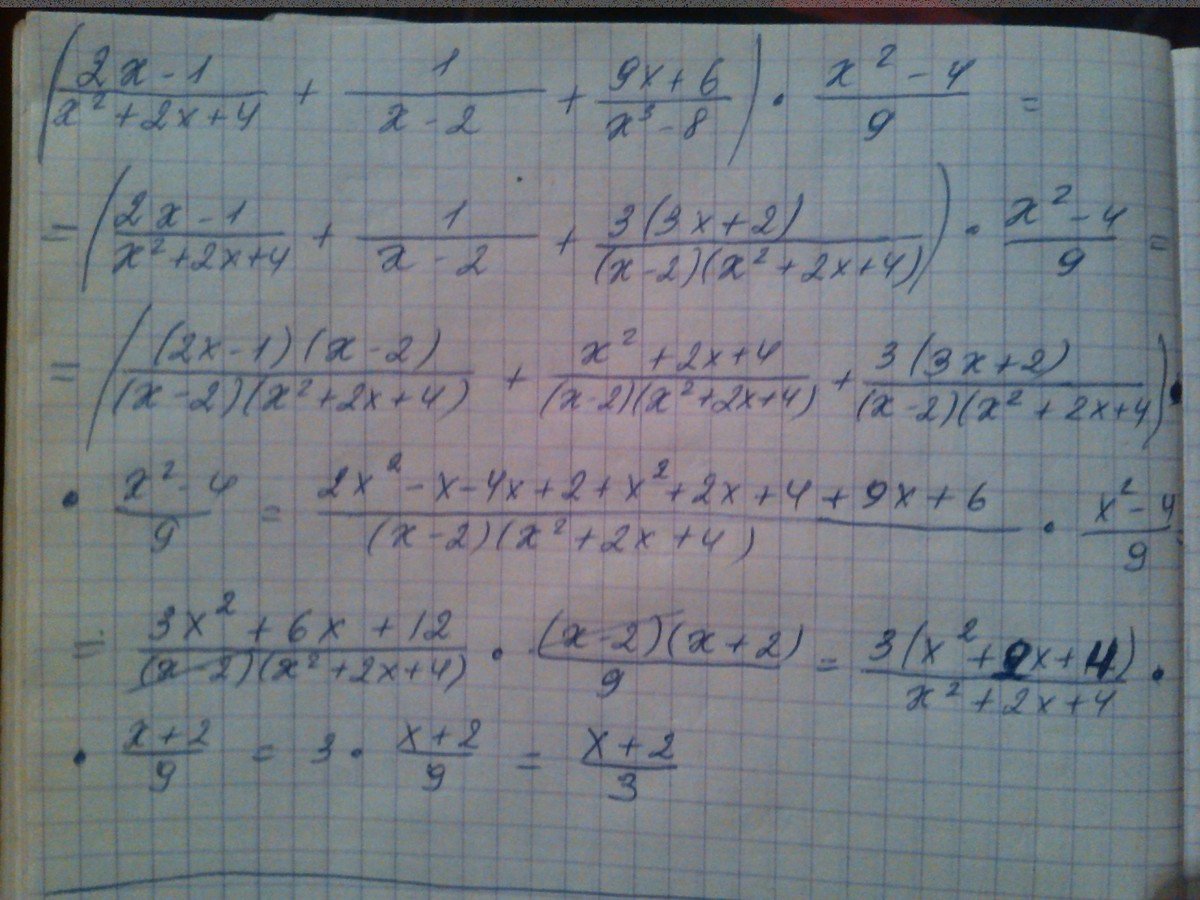 ((2x-1)/(x²+2x+4) + 1/(x-2) + (9x+6)/(x³-8)) · (x²-4)/9 =
= ((2x-1)/(x²+2x+4) + 1/(x-2) + 3(3x+2)/((x-2)(x²+2x+4))) · (x²-4)/9 =
= ((2x-1)(x-2)/((x-2)(x²+2x+4)) + (x²+2x+4)/((x-2)(x²+2x+4)) + 3(3x+2)/((x-2)(x²+2x+4))) ·
· (x²-4)/9 = (2x²-x-4x+2+x²+2x+4+9x+6)/((x-2)(x²+2x+4)) · (x²-4)/9 =
= (3x²+6x+12)/((x-2)(x²+2x+4)) · (x-2)(x+2)/9 = 3(x²+2x+4)/(x²+2x+4) ·
· (x+2)/9 = 3 · (x+2)/9 = (x+2)/3